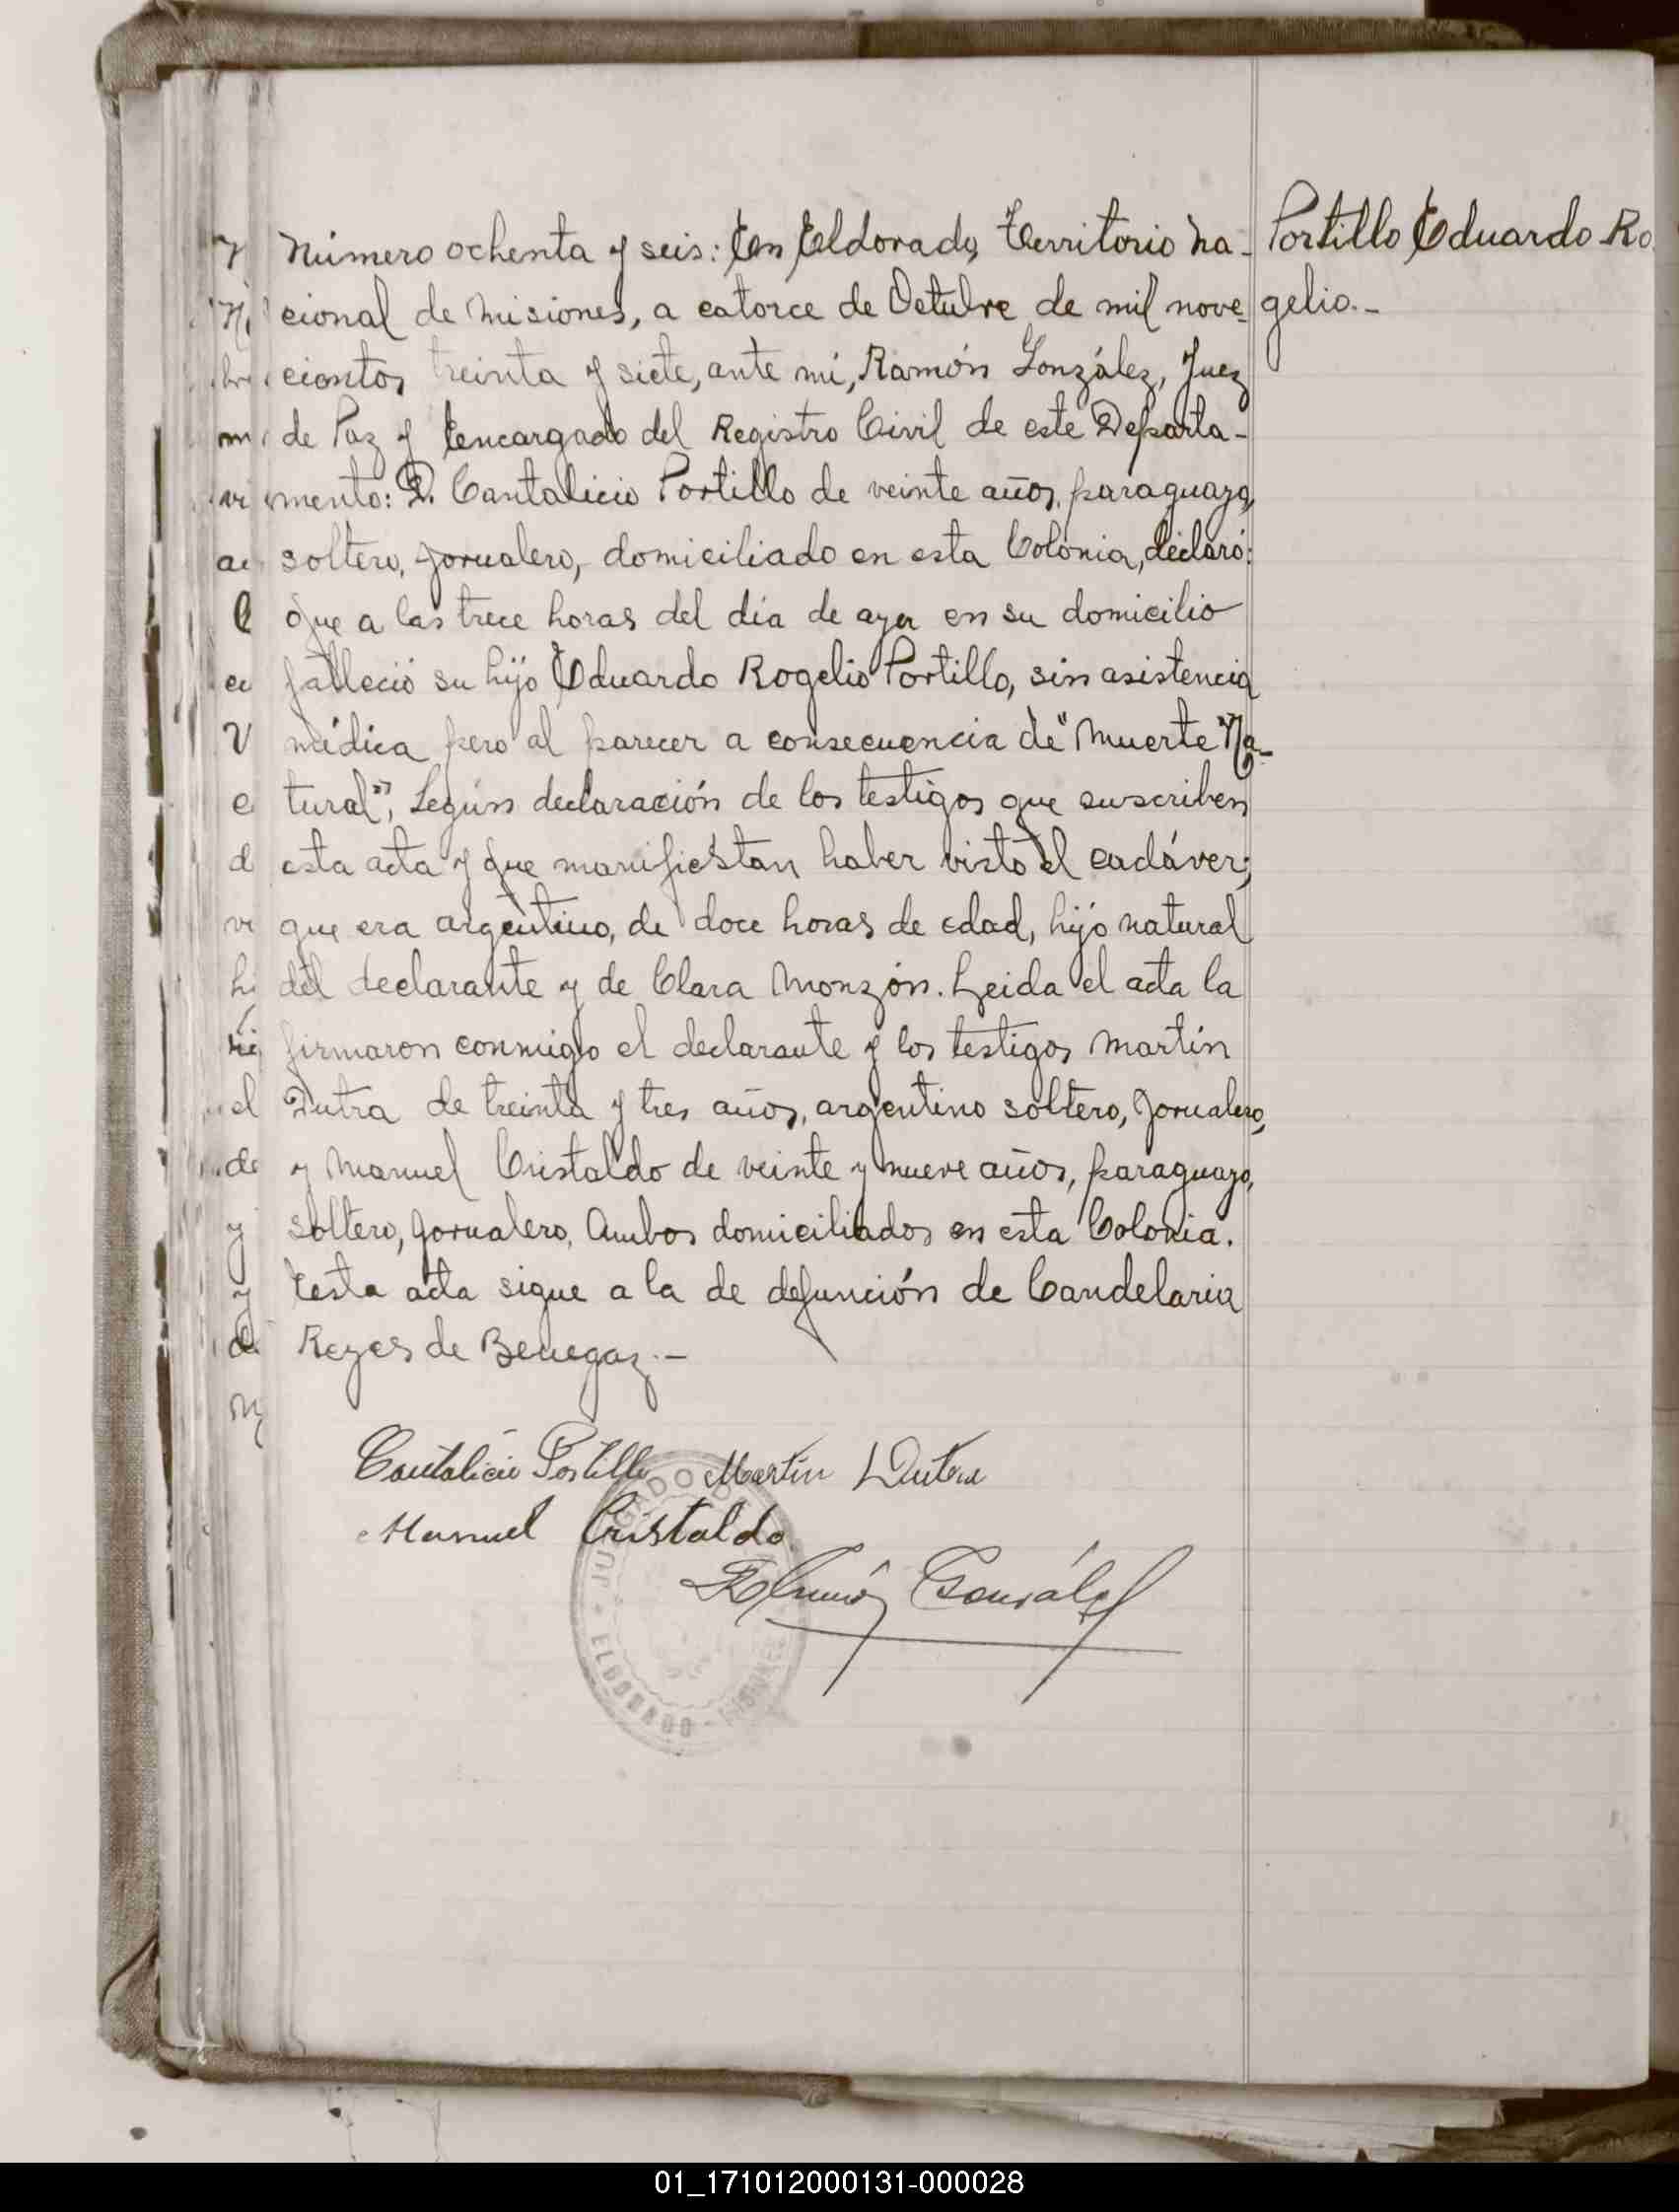 Número ochenta y seis: En Eldorado, Territorio Na-
cional de Misiones, a catorce de Octubre de mil nove-
cientos treinta y siete, ante mí, Ramón González, Juez
de Paz y Encargado del Registro Civil de este Departa-
mento: D. Cantalicio Portillo de veinte años, paraguayo,
soltero, jornalero, domiciliado en esta Colonia, declaró:
Que a las trece horas del día de ayer en su domicilio
falleció su hijo Eduardo Rogelio Portillo, sin asistencia
médica pero al parecer a consecuencia de "Muerte Na-
tural", Según declaración de los testigos que suscriben
esta acta y que manifiestan haber visto el cadáver;
que era argentino, de doce horas de edad, hijo natural
del declarante y de Clara Monzón. Leida el acta la
firmaron conmigo el declarante y los testigos Martín
Dutra de treinta y tres años, argentino soltero, Jornalero,
y Manuel Cristaldo de veinte y nueve años, paraguayo,
soltero, jornalero, Ambos domiciliados en esta Colonia.
Esta acta sigue a la de defunción de Candelaria
Reyes de Benegaz.-
Portillo Eduardo Ro
gelio.-
Cantalicio Portillo Martín Dutra
Manuel Cristaldo
Ramón González
JUZGADO DE
ELDORADO - MISIONES
01_171012000131-000028